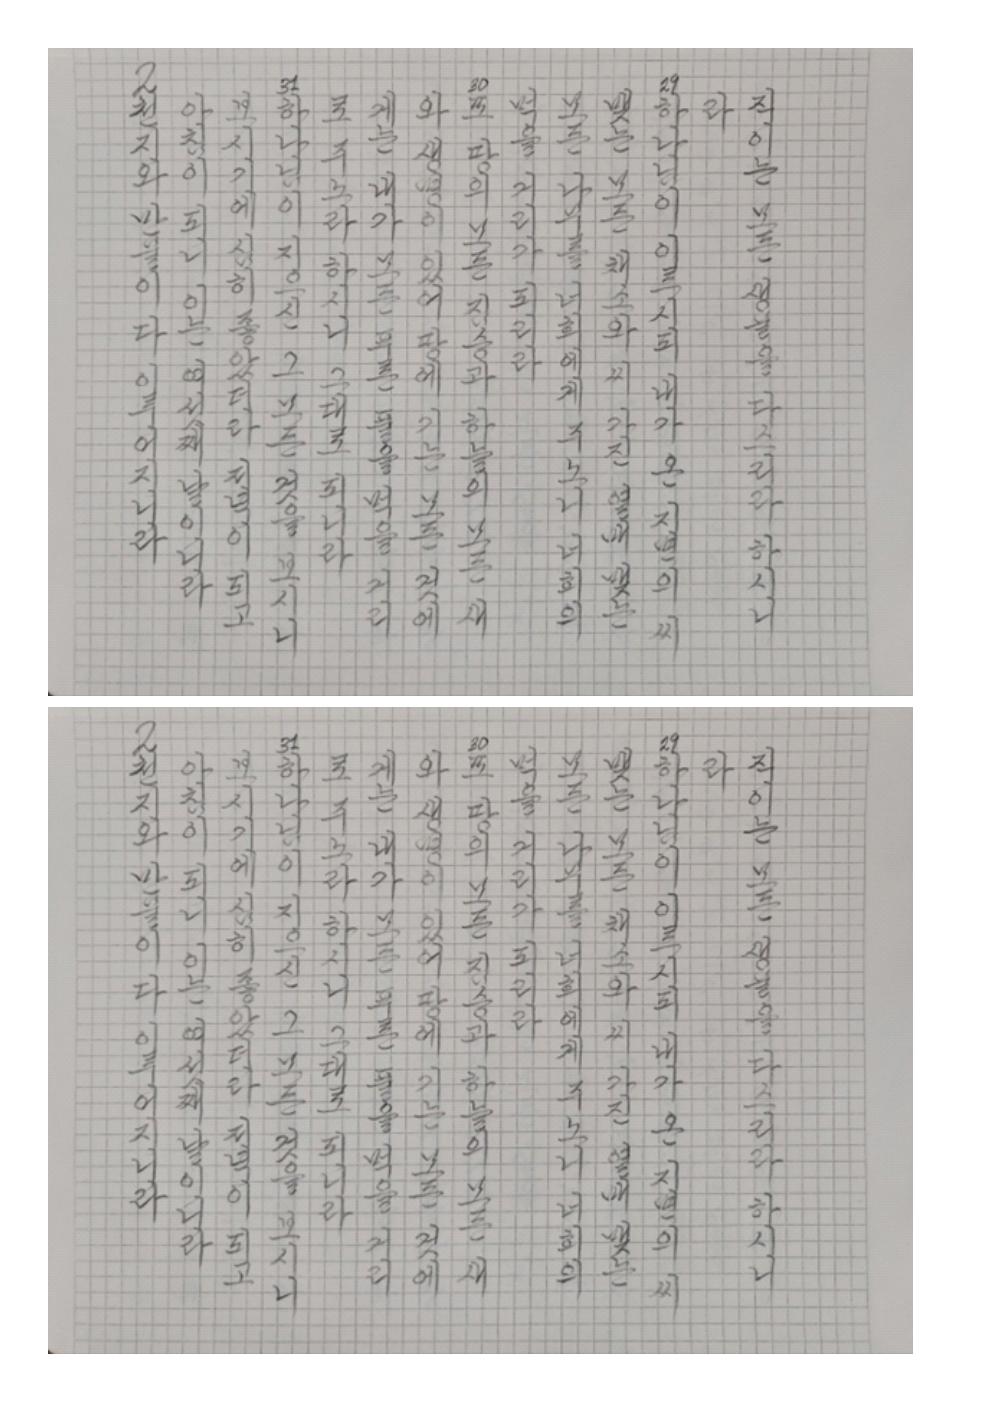 직이는 모든 생물을 다스리라 하시니
라
29 하나님이 이르시되 내가 온 지면의 씨
맺는 모든 채소와 씨 가진 열매 맺는
모든 나무를 너희에게 주노니 너희의
먹을 거리가 되리라
30 또 땅의 모든 짐승과 하늘의 모든 새
와 생명이 있어 땅에 기는 모든 것에
게는 내가 모든 푸른 풀을 먹을 거리
로 주노라 하시니 그대로 되니라
31 하나님이 지으신 그 모든 것을 보시니
보시기에 심히 좋았더라 저녁이 되고
아침이 되니 이는 여섯째 날이니라
2 천지와 만물이 다 이루어지니라
직이는 모든 생물을 다스리라 하시니
라
29 하나님이 이르시되 내가 온 지면의 씨
맺는 모든 채소와 씨 가진 열매 맺는
모든 나무를 너희에게 주노니 너희의
먹을 거리가 되리라
30 또 땅의 모든 짐승과 하늘의 모든 새
와 생명이 있어 땅에 기는 모든 것에
게는 내가 모든 푸른 풀을 먹을 거리
로 주노라 하시니 그대로 되니라
31 하나님이 지으신 그 모든 것을 보시니
보시기에 심히 좋았더라 저녁이 되고
아침이 되니 이는 여섯째 날이니라
2 천지와 만물이 다 이루어지니라